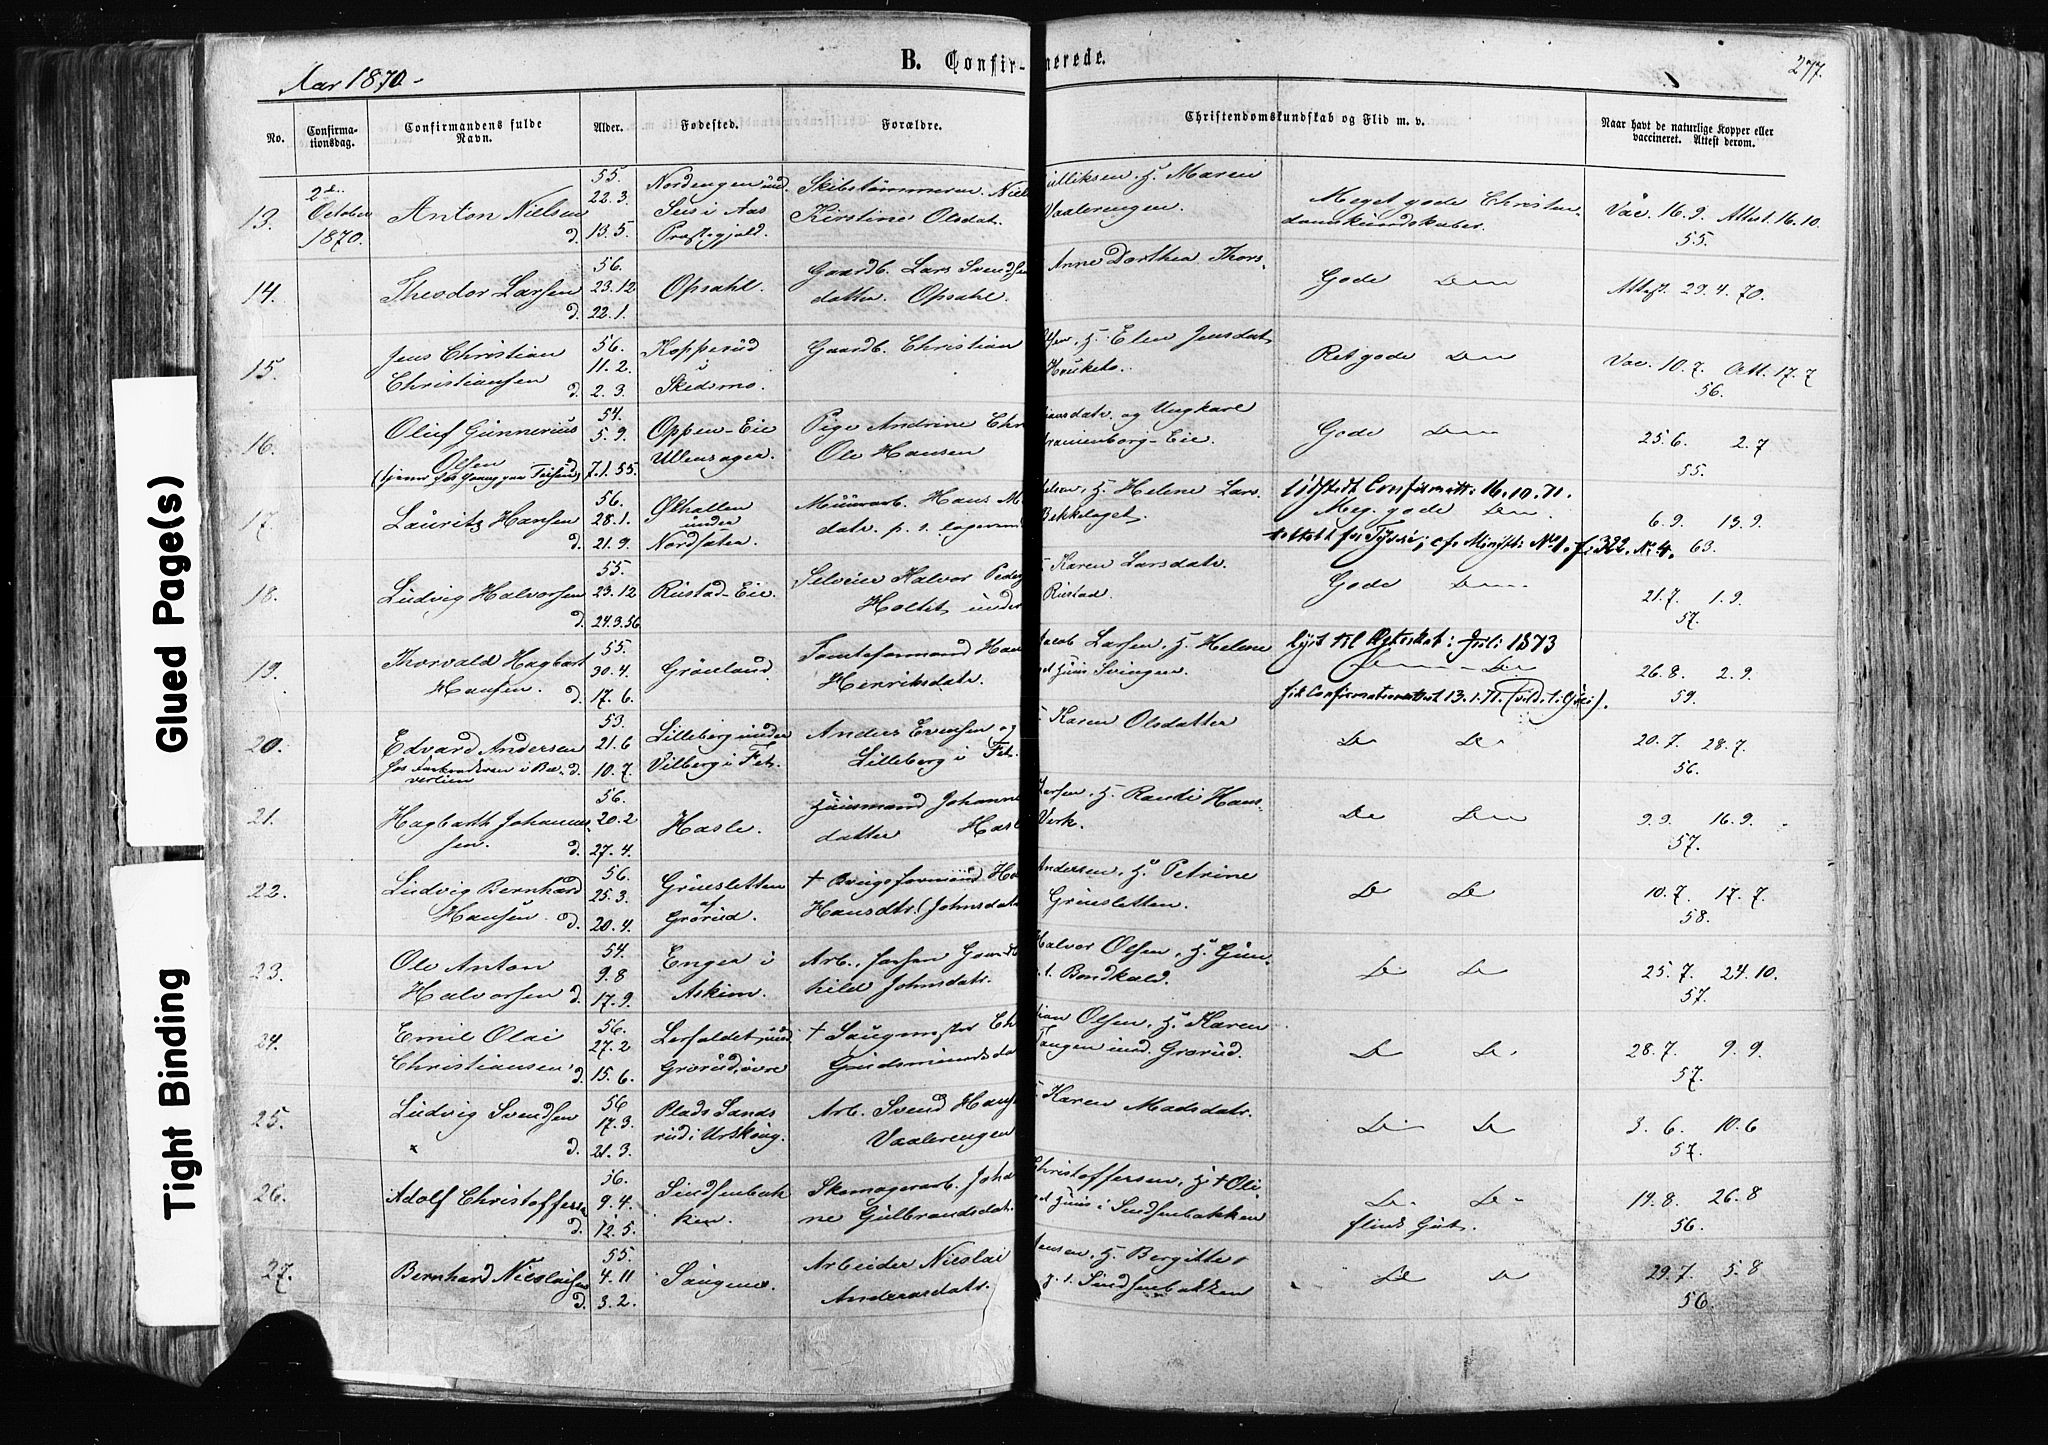 Aar 1870.
B. Confir-merede.
277.
No.
Confirma-
tionsdag.
Confirmandens fulde
Navn.
Alder.
Fødested.
Forældre.
Christendomskundskab og Flid m. v.
Naar havt de naturlige Kopper eller
vaccineret. Attest derom.
Glued Page(s)
Tight Binding
13.
2de
October
1870.
Anton Nielsen
d.
55.
22.3.
13.5.
Nordengen und.
i Aas
Præstegjeld.
Skibstømmerm. Niels Gulliksen, H. Maren
Kirstine Olsdat. Vaalerengen.
Meget gode Christen-
domskundskaber.
Vac. 16.9. Attest. 16.10.
55.
14.
Theodor Larsen
d.
56.
23.12
22.1.
Opsahl.
Gaardb. Lars Svendsen Anne Dorthea Thors-
datter. Opsahl.
Gode Do
Attest. 29.4.70.
15.
Jens Christian
Christiansen
d.
56.
11.2.
2.3.
Kopperud
i
Skedsmo.
Gaardb. Christian H. Elen Jensdat.
Hauketo.
Ret gode Do
Vac. 10.7. Att. 17.7
56.
16.
Oluf Gunnerius
Olsen
54.
5.9.
7.1.55.
Oppen-Eie
Ullensager.
Pige Andrine Christiansdatr. og Ungkarl
Ole Hansen Eie.
Gode Do
25.6. 2.7
55.
17.
Lauritz Hansen
d.
56.
28.1.
21.9.
Ølhallen
under
Nordsæter.
Muurarb. Hans H. Helene Lars-
datr. p. t. logerende Bekkelaget.
Udstedt Confirmatt: 16.10.71.
Meg. gode Do
No. 1. f: 322. No: 4.
6.9. 13.9.
63.
18.
Ludvig Halvorsen
d.
55.
23.12
24.3.56
Rustad-Eie.
Selveier Halvor Karen Larsdatr.
Holtet under Rustad.
Gode Do
21.7. 1.9.
57.
19.
Thorvald Hagbart
Hansen.
d.
55.
30.4.
17.6.
Grønland.
Tomteformand Hans Jacob Larsen, H. Helene
Henriksdatr. Svingen.
Lyst til Ægteskab i Juli 1873
Do Do
fik Confirmationsattest 13.1.71.
26.8. 2.9.
59.
20.
Edvard Andersen
d.
53.
21.6
10.7.
Lilleberg under
Vilberg i Fet.
Anders Evensen og H. Karen Olsdatter
Lilleberg i Fet.
Do Do
20.7. 28.7.
56.
21.
Hagbarth Johannes-
sen.
d.
56.
20.2
27.4.
Hasle.
Huusmand Johannes H. Randi Hans-
datter Hasle Verk.
Do Do
9.9. 16.9.
57.
22.
Ludvig Bernhard
Hansen
d.
56.
25.3.
20.4.
Gruesletten
af
Grorud.
† Brugsformand Andersen, H. Petrine
Hansdtr. (Johnsdatr Gruesletten.
Do Do
10.7. 17.7.
58.
23.
Ole Anton
Halvorsen
d.
54.
9.8
17.9.
Enger i
Askim.
Arb. Halvor Olsen, H. Gun-
hild Johnsdatr. p. t. Bondkald.
Do Do
25.7. 24.10.
57.
24.
Emil Olai
Christiansen
d.
56.
27.2
15.6.
Lerfaldet und.
Grorud, øvre
† Saugmester Christian Olsen, H. Karen
Gudsmundsdatr Tangen und. Grorud.
Do Do
28.7. 9.9.
57.
25.
Ludvig Svendsen
d.
56
17.3.
21.3.
Plads Sands
rud i Urskoug.
Arb. Svend Hansen H. Karen Madsdatr.
Vaalerengen
Do Do
3.6. 10.6
57.
26.
Adolf Christoffersen
d.
56.
9.4.
12.5.
Sindsenbak
ken.
Skomagerarb. Johan Christoffersen, H. † Oli-
ne Gulbrandsdat. Huus i Sindsenbakken
Do Do
flink Gut.
19.8. 26.8
56.
27.
Bernhard Nicolaisen
d.
55.
4.11
3.2.
Saugene.
Arbeider Nicolai Jensen, H. Bergitte
Andersdatr. p. t. Sindsenbakken
Do Do
29.7. 5.8
56.